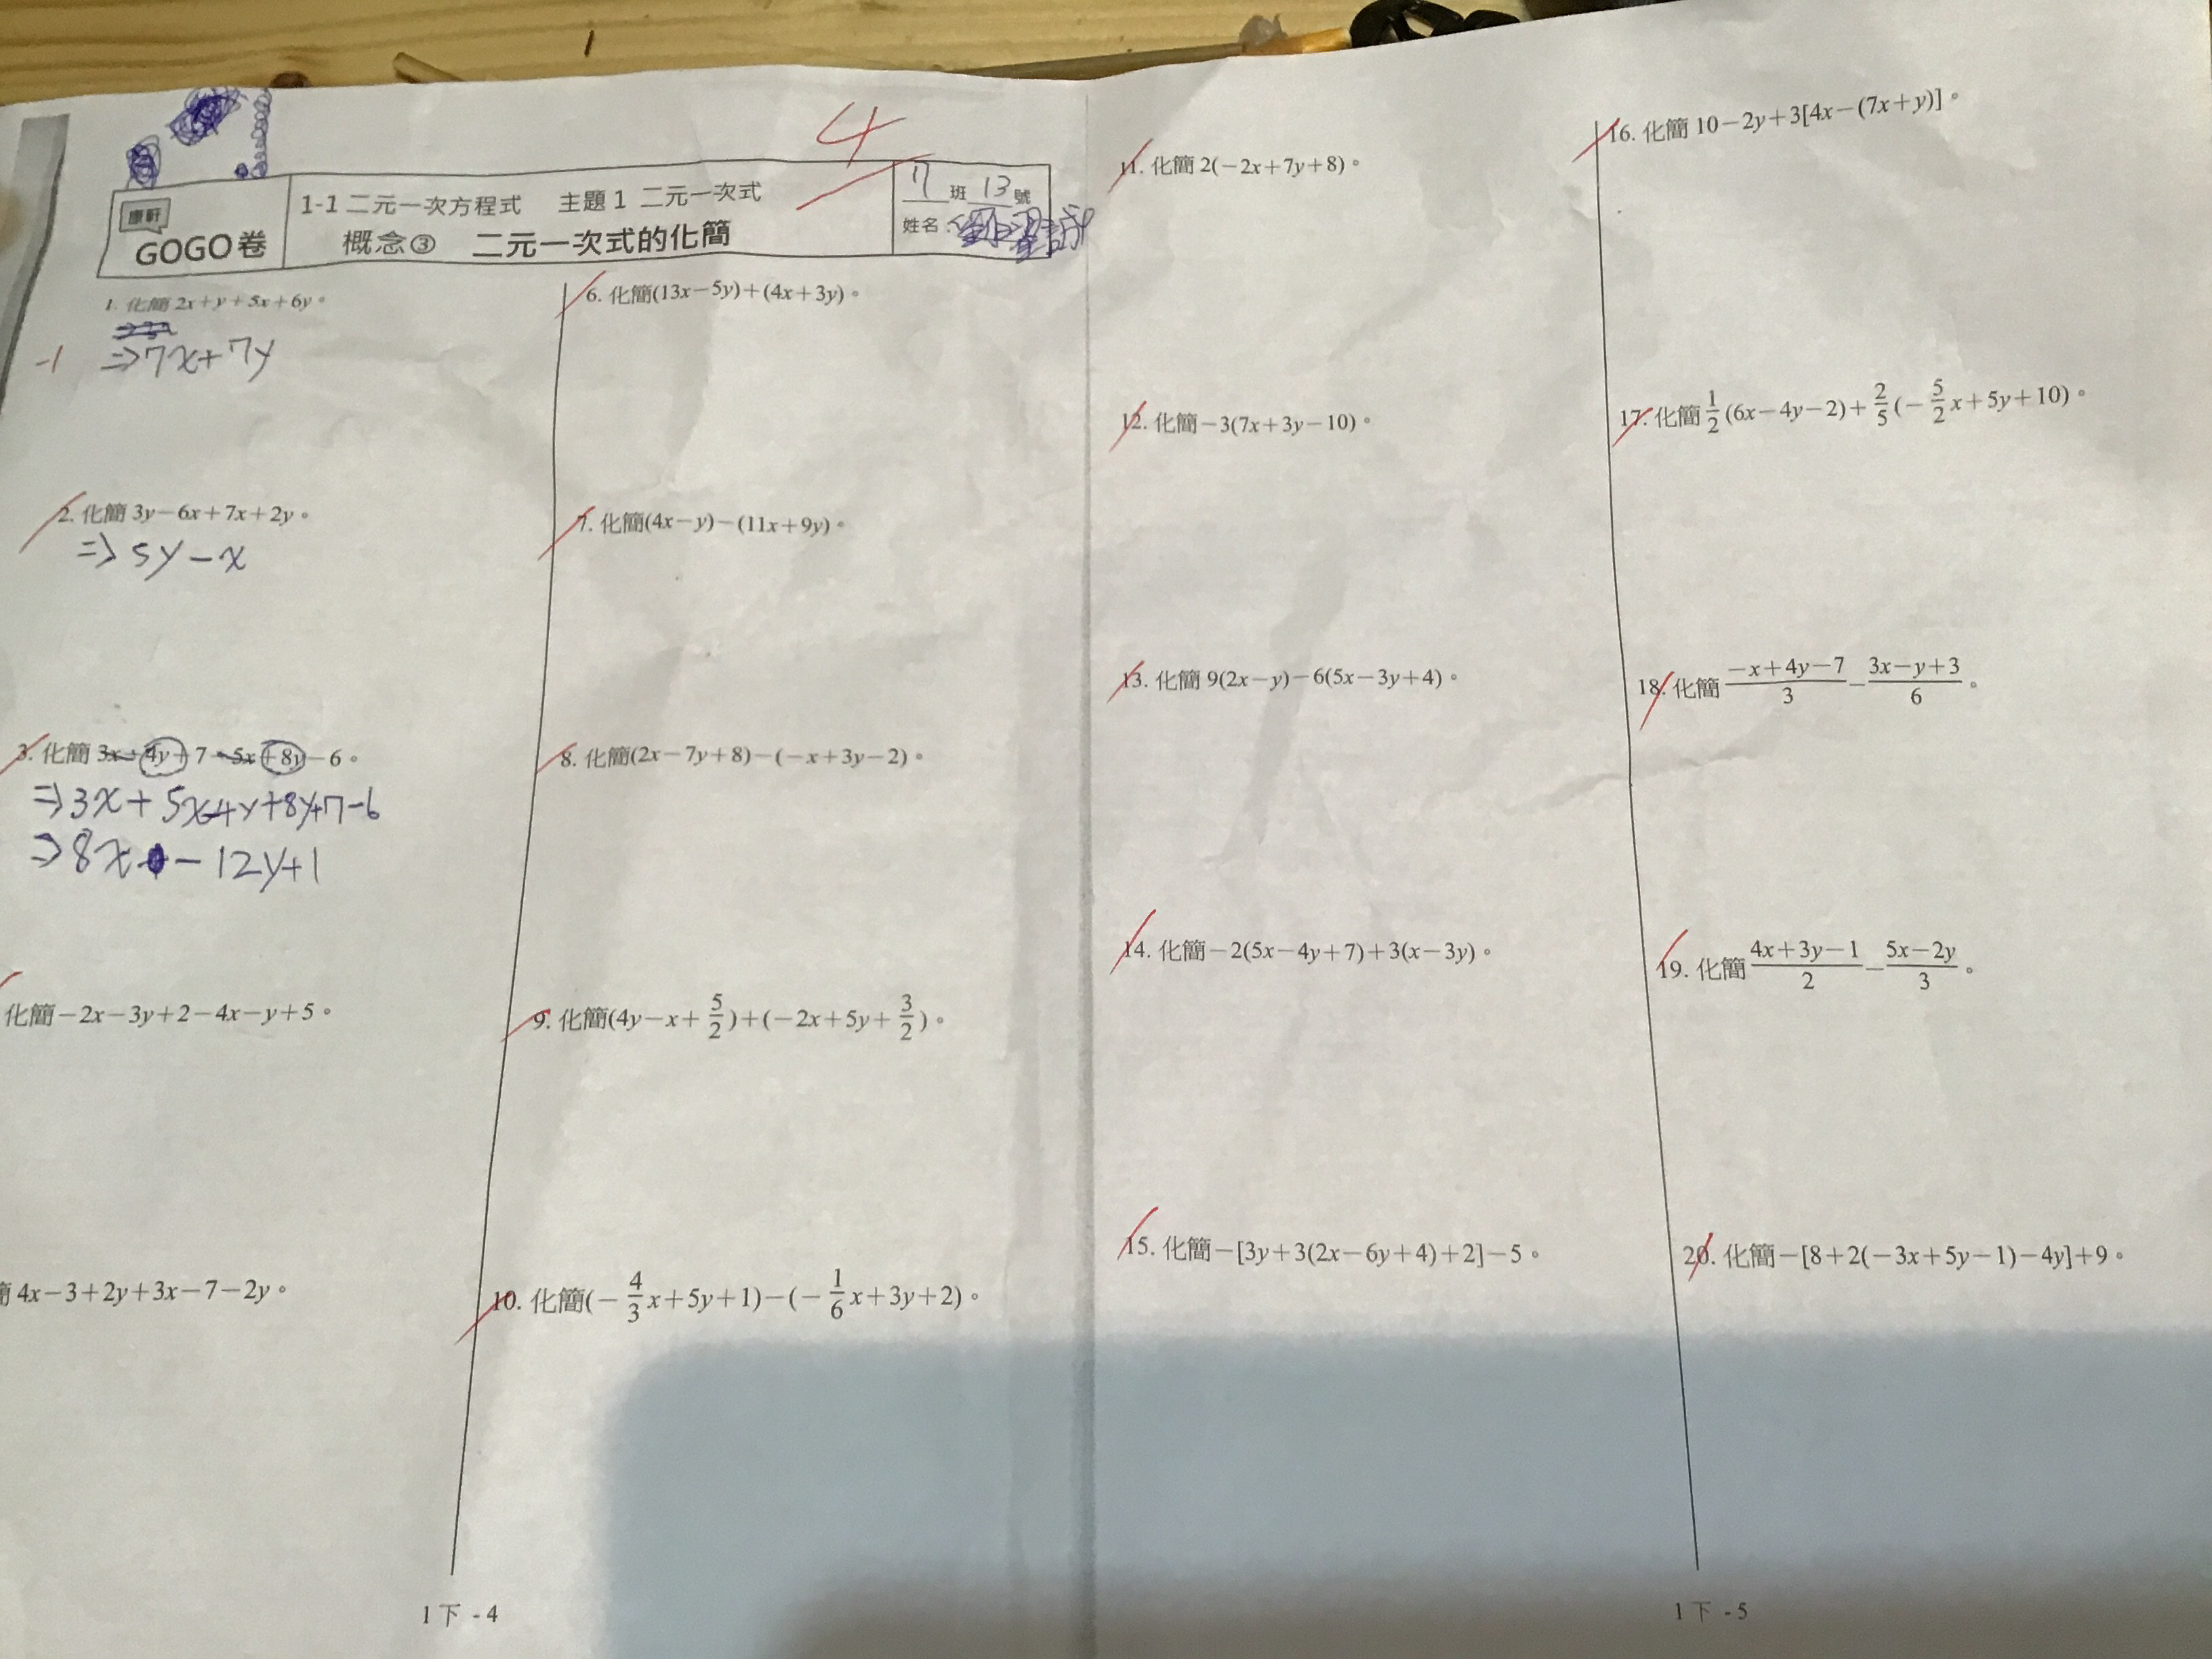 4
康軒
GOGO卷
1-1 二元一次方程式 主題1 二元一次式
概念③ 二元一次式的化簡
17 班 13 號
姓名:
1. 化簡 2x+y+5x+6y。
-1
⇒7x+7y
2. 化簡 3y-6x+7x+2y。
⇒5y-x
3. 化簡 4y+7-5x+8y-6。
⇒3x+5x-4y+8y+7-6
⇒8x-12y+1
化簡-2x-3y+2-4x-y+5。
4x-3+2y+3x-7-2y。
6. 化簡(13x-5y)+(4x+3y)。
7. 化簡(4x-y)-(11x+9y)。
8. 化簡(2x-7y+8)-(-x+3y-2)。
9. 化簡(4y-x+5/2)+(-2x+5y+3/2)。
10. 化簡(-4/3x+5y+1)-(-1/6x+3y+2)。
1下-4
11. 化簡 2(-2x+7y+8)。
12. 化簡-3(7x+3y-10)。
13. 化簡 9(2x-y)-6(5x-3y+4)。
14. 化簡-2(5x-4y+7)+3(x-3y)。
15. 化簡-[3y+3(2x-6y+4)+2]-5。
16. 化簡 10-2y+3[4x-(7x+y)]。
17. 化簡 1/2(6x-4y-2)+2/5(-5/2x+5y+10)。
18. 化簡 -x+4y-7/3-3x-y+3/6。
19. 化簡 4x+3y-1/2-5x-2y/3。
20. 化簡-[8+2(-3x+5y-1)-4y]+9。
1下-5